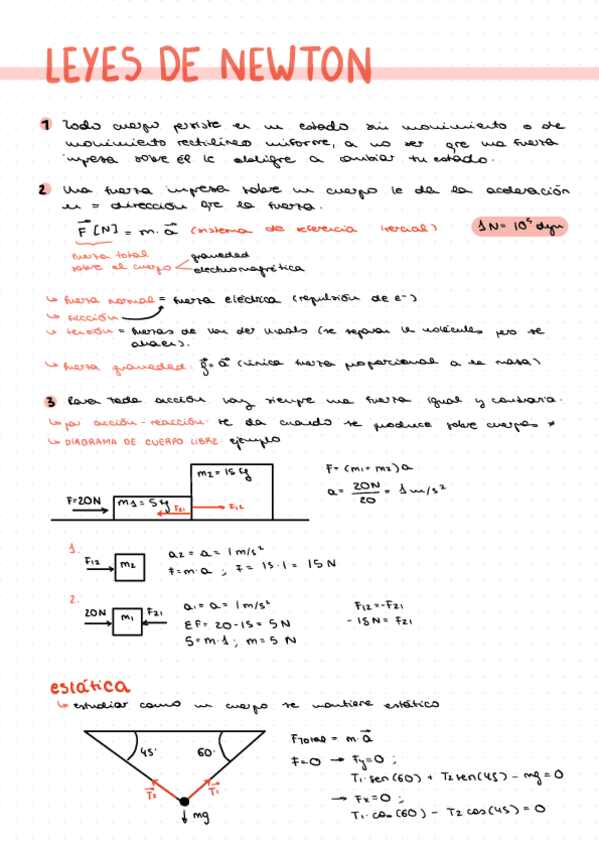 LEYES DE NEWTON
1 Todo cuerpo persiste en un estado sin movimiento o de
movimiento rectilíneo uniforme, a no ser que una fuerza
impresa sobre él le obligue a cambiar tu estado.
2 Una fuerza impresa sobre un cuerpo le da la aceleración
en = dirección que la fuerza.
F⃗ [N] = m. a⃗ (sistema de referencia inercial) 1N = 10⁵ dyn
fuerza total
sobre el cuerpo < gravedad
electromagnética
↳ fuerza normal = fuerza eléctrica (repulsión de e⁻)
↳ fricción
↳ tensión = fuerzas de Van der Waals (se separan las moléculas pero se
atraen).
↳ fuerza gravedad: g⃗ = a⃗ (única fuerza proporcional a la masa)
3 Para toda acción hay siempre una fuerza igual y contraria.
↳ par acción-reacción: se da cuando se produce sobre cuerpos ≠
↳ DIAGRAMA DE CUERPO LIBRE: ejemplo
F=20N m1=5 kg F21 m2=15 kg F12
F= (m1+m2)a
a= 20N/20 = 1 m/s²
1.
F12 m2
a2 = a = 1 m/s²
F=m·a ; F= 15·1 = 15 N
2.
20N m1 F21
a1 = a = 1 m/s²
ΣF= 20-15 = 5 N
5=m·1 ; m=5 N
F12=-F21
-15N= F21
estática
↳ estudiar como un cuerpo se mantiene estático
45° 60°
T⃗2 T⃗1
mg
FTotal = m·a⃗
F=0 → Fy=0 ;
T1·sen(60) + T2 sen(45) - mg = 0
→ Fx=0 ;
T1·cos(60) - T2 cos(45) = 0